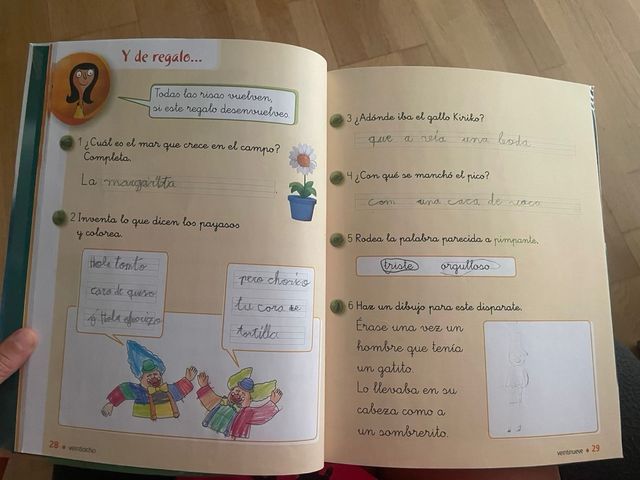 Y de regalo...
Todas las risas vuelven,
si este regalo desenvuelves.
1 ¿Cuál es el mar que crece en el campo?
Completa.
La margarita
2 Inventa lo que dicen los payasos
y colorea.
Hola tontito
cara de queso
y Hola
pero chorizo
tu cara de
tortilla
28 veintiocho
3 ¿Adónde iba el gallo Kiriko?
que a veía una boda
4 ¿Con qué se manchó el pico?
com una caca de vaca
5 Rodea la palabra parecida a pimpante.
triste orgulloso
6 Haz un dibujo para este disparate.
Érase una vez un
hombre que tenía
un gatito.
Lo llevaba en su
cabeza como a
un sombrerito.
veintinueve 29